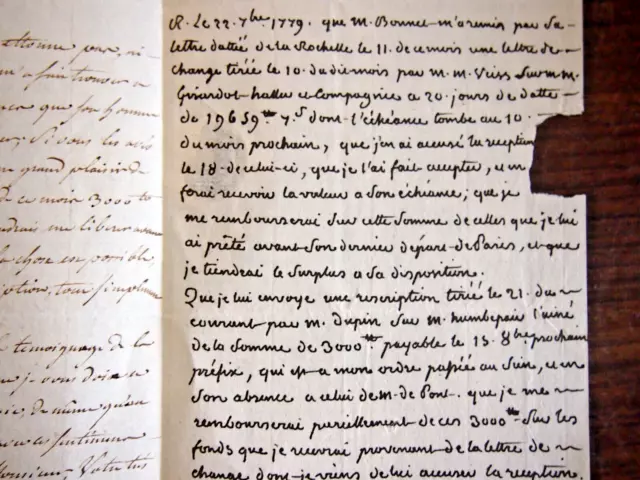 ettonne pour, ai-
m'a fait trouver a
que son homme
Si vous les avés
un grand plaisir de
de ce mois 3000 tt
la chose est possible,
tout simplement
le temoignage de la
que je vous dois a
de même qu'en
Monsieur, Votre très
R. Le 22. 7bre 1779. que M. Bonnet m'a remis par sa
lettre dattée de la Rochelle le 11. de ce mois une lettre de
change tirée le 10. du die mois par M. M. Veiss Sur M. M.
Girardot haller et Compagnie a 20. jours de datte
de 19659tt 7s dont l'échéance tombe au 10.
du mois prochain, que j'en ai accusé la reception
le 18. de celui-ci, que je l'ai fait accepter, et en
ferai recevoir la valeur a son échéance; que je
me rembourserai Sur cette Somme de celles que je lui
ai prêté avant son dernier départ de Paris, et que
je tiendrai le Surplus a Sa disposition.
Que je lui envoye une rescription tirée le 21. du
courant par M. Dupin Sur M. humbepair l'ainé
de la Somme de 3000tt payable le 15. 8bre prochain
préfix, qui est a mon ordre passée au Sien, et en
Son absence a celui de M. de Pont. que je me
rembourserai pareillement de ces 3000tt Sur les
fonds que je recevrai provenant de la lettre de
change dont je viens de lui accuser la reception.